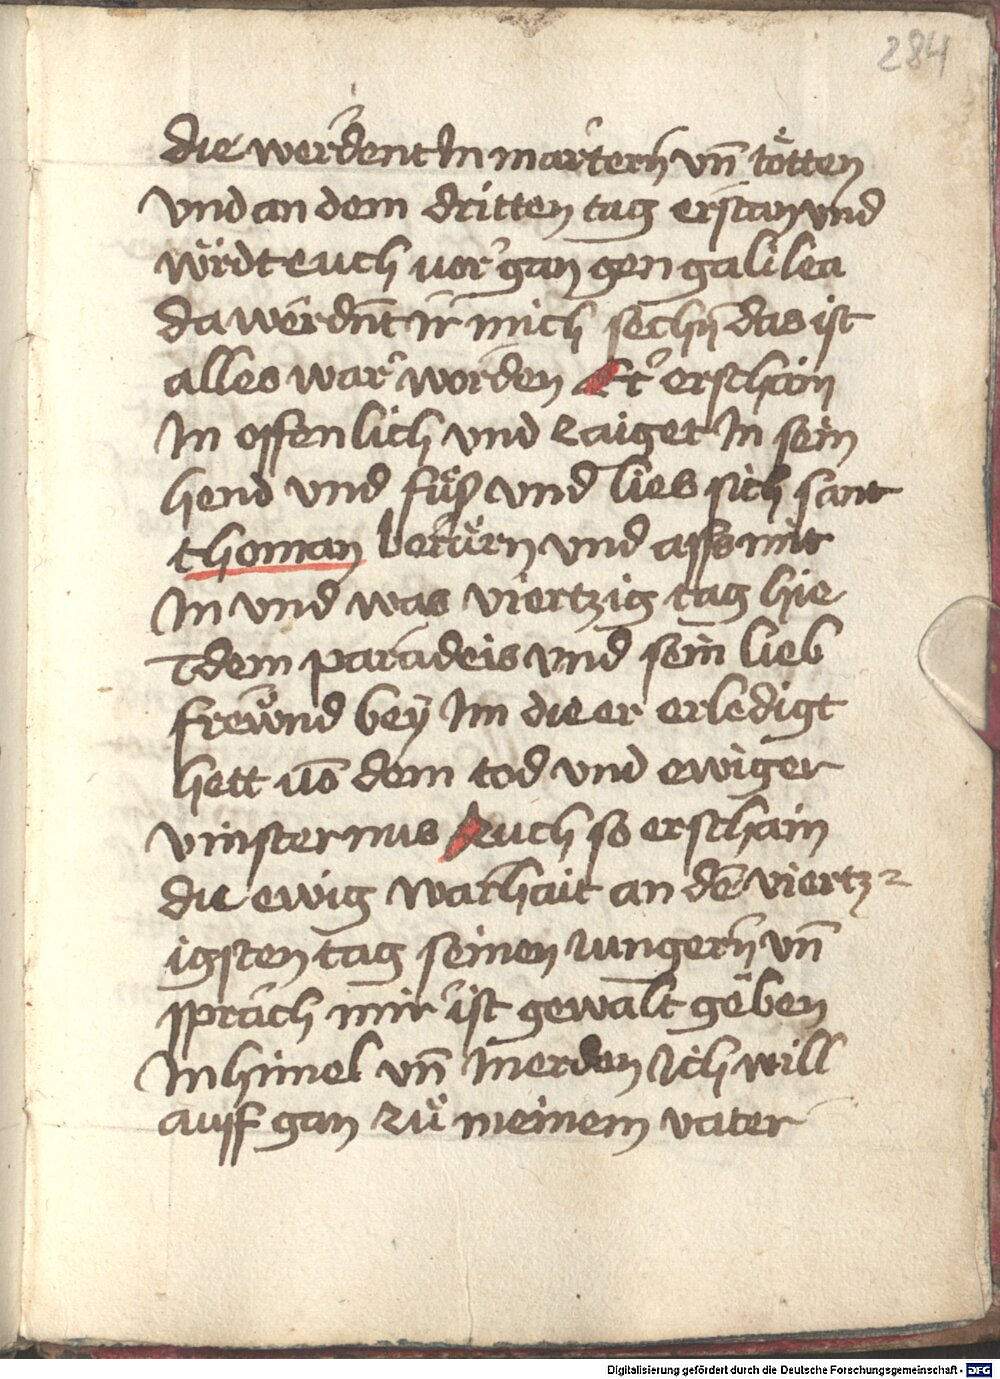 284
die werdent In martern vn̄ tötten
vnd an dem dritten tag erstan vnd
wirdt euch vor gan gen galilea
da werdn̄t ir mich sechn̄ das ist
alles war worden Er erschain
In offenlich vnd zaiget In sein
hend vnd füß vnd lies sich sant
thoman berürn vnd ass mit
In vnd was viertzig tag hie
dem paradeis vnd sein lieb
frewnd bey Im die er erledigt
hett vō dem tod vnd ewiger
vinsternus Auch so erschain
die ewig warhait an dē viertz
igsten tag seinen iungern̄ vn̄
sprach mir ist gewalt geben
In himel vn̄ In erden Ich will
auff gan zů meinem vater
Digitalisierung gefördert durch die Deutsche Forschungsgemeinschaft - DFG